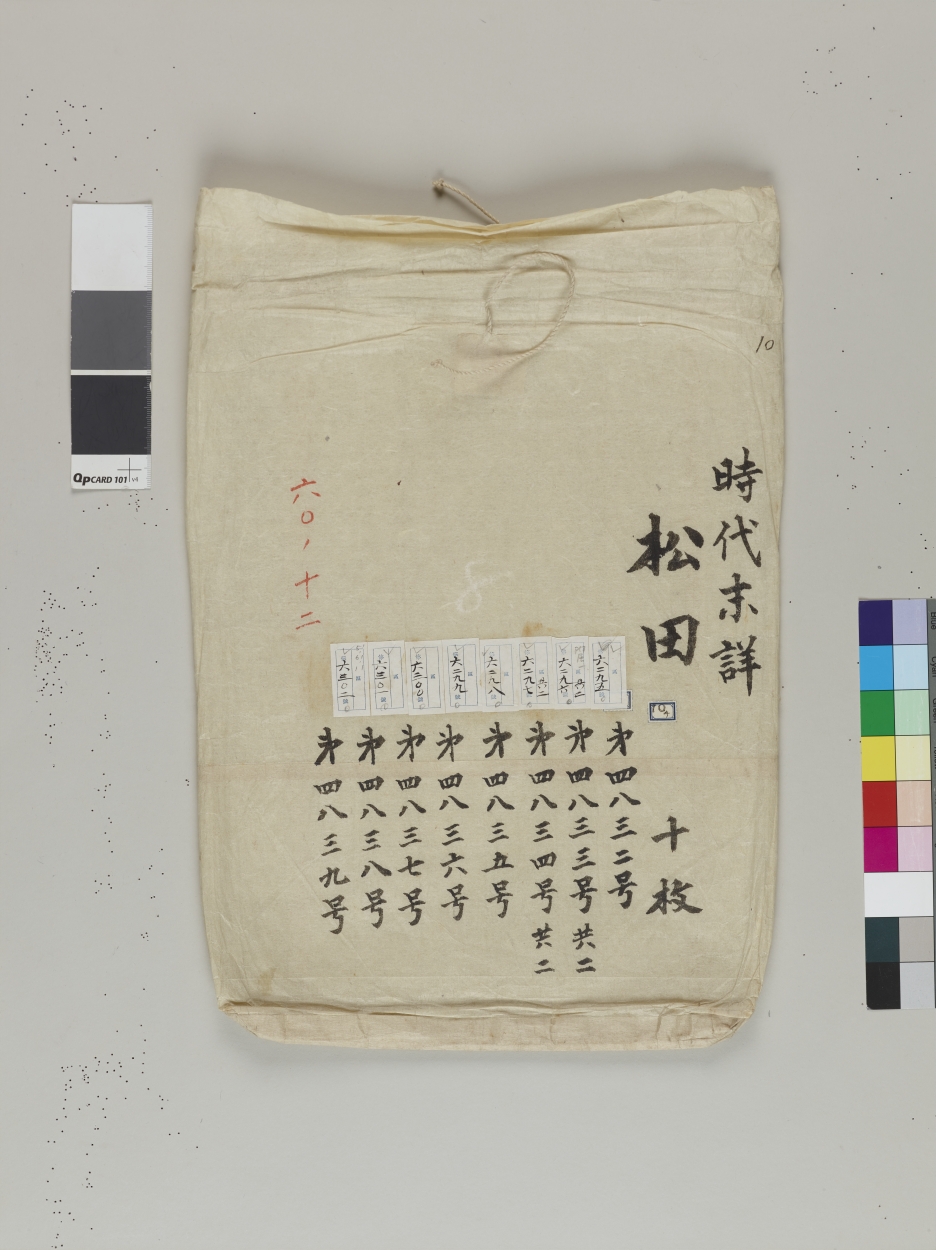 10
時代未詳
松田
十枚
10
第四八三二号
第四八三三号 共二
第四八三四号 共二
第四八三五号
第四八三六号
第四八三七号
第四八三八号
第四八三九号
六二九五
六二九六 共二
六二九七 共二
六二九八
六二九九
六三〇〇
六三〇一
六三〇二
8
六〇、十二
QPCARD 101 v4
Blue
Cyan
Green